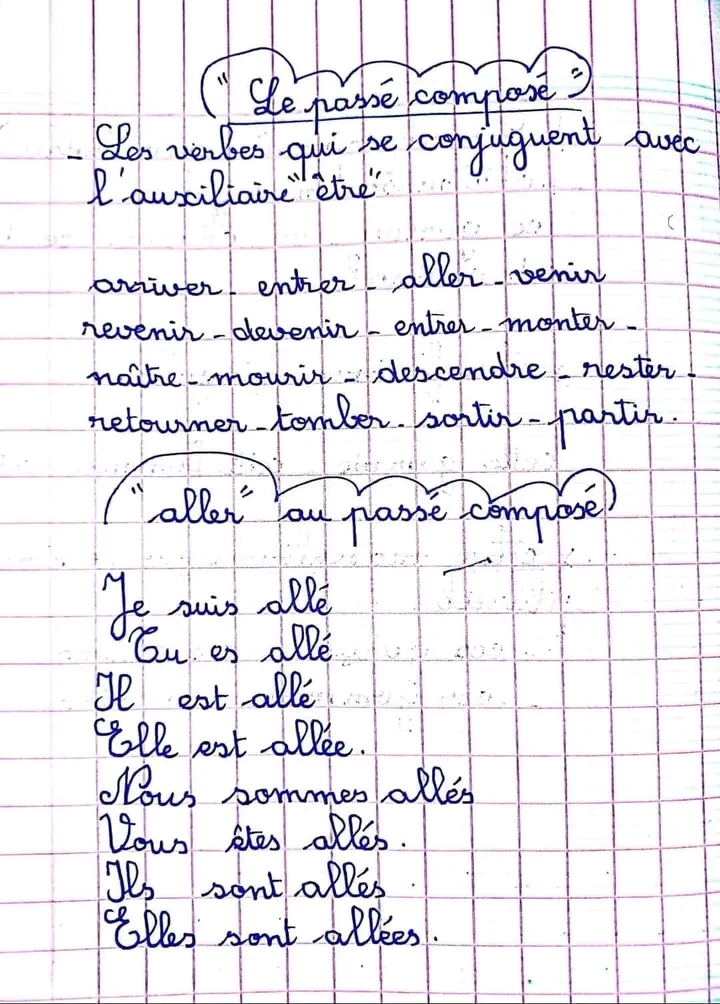 " Le passé composé "
- Les verbes qui se conjuguent avec
l'auxiliaire "être"
arriver - entrer - aller - venir
revenir - devenir - entrer - monter -
naître - mourir - descendre - rester -
retourner - tomber - sortir - partir.
"aller" au passé composé
Je suis allé
Tu es allé
Il est allé
Elle est allée.
Nous sommes allés
Vous êtes allés.
Ils sont allés
Elles sont allées.